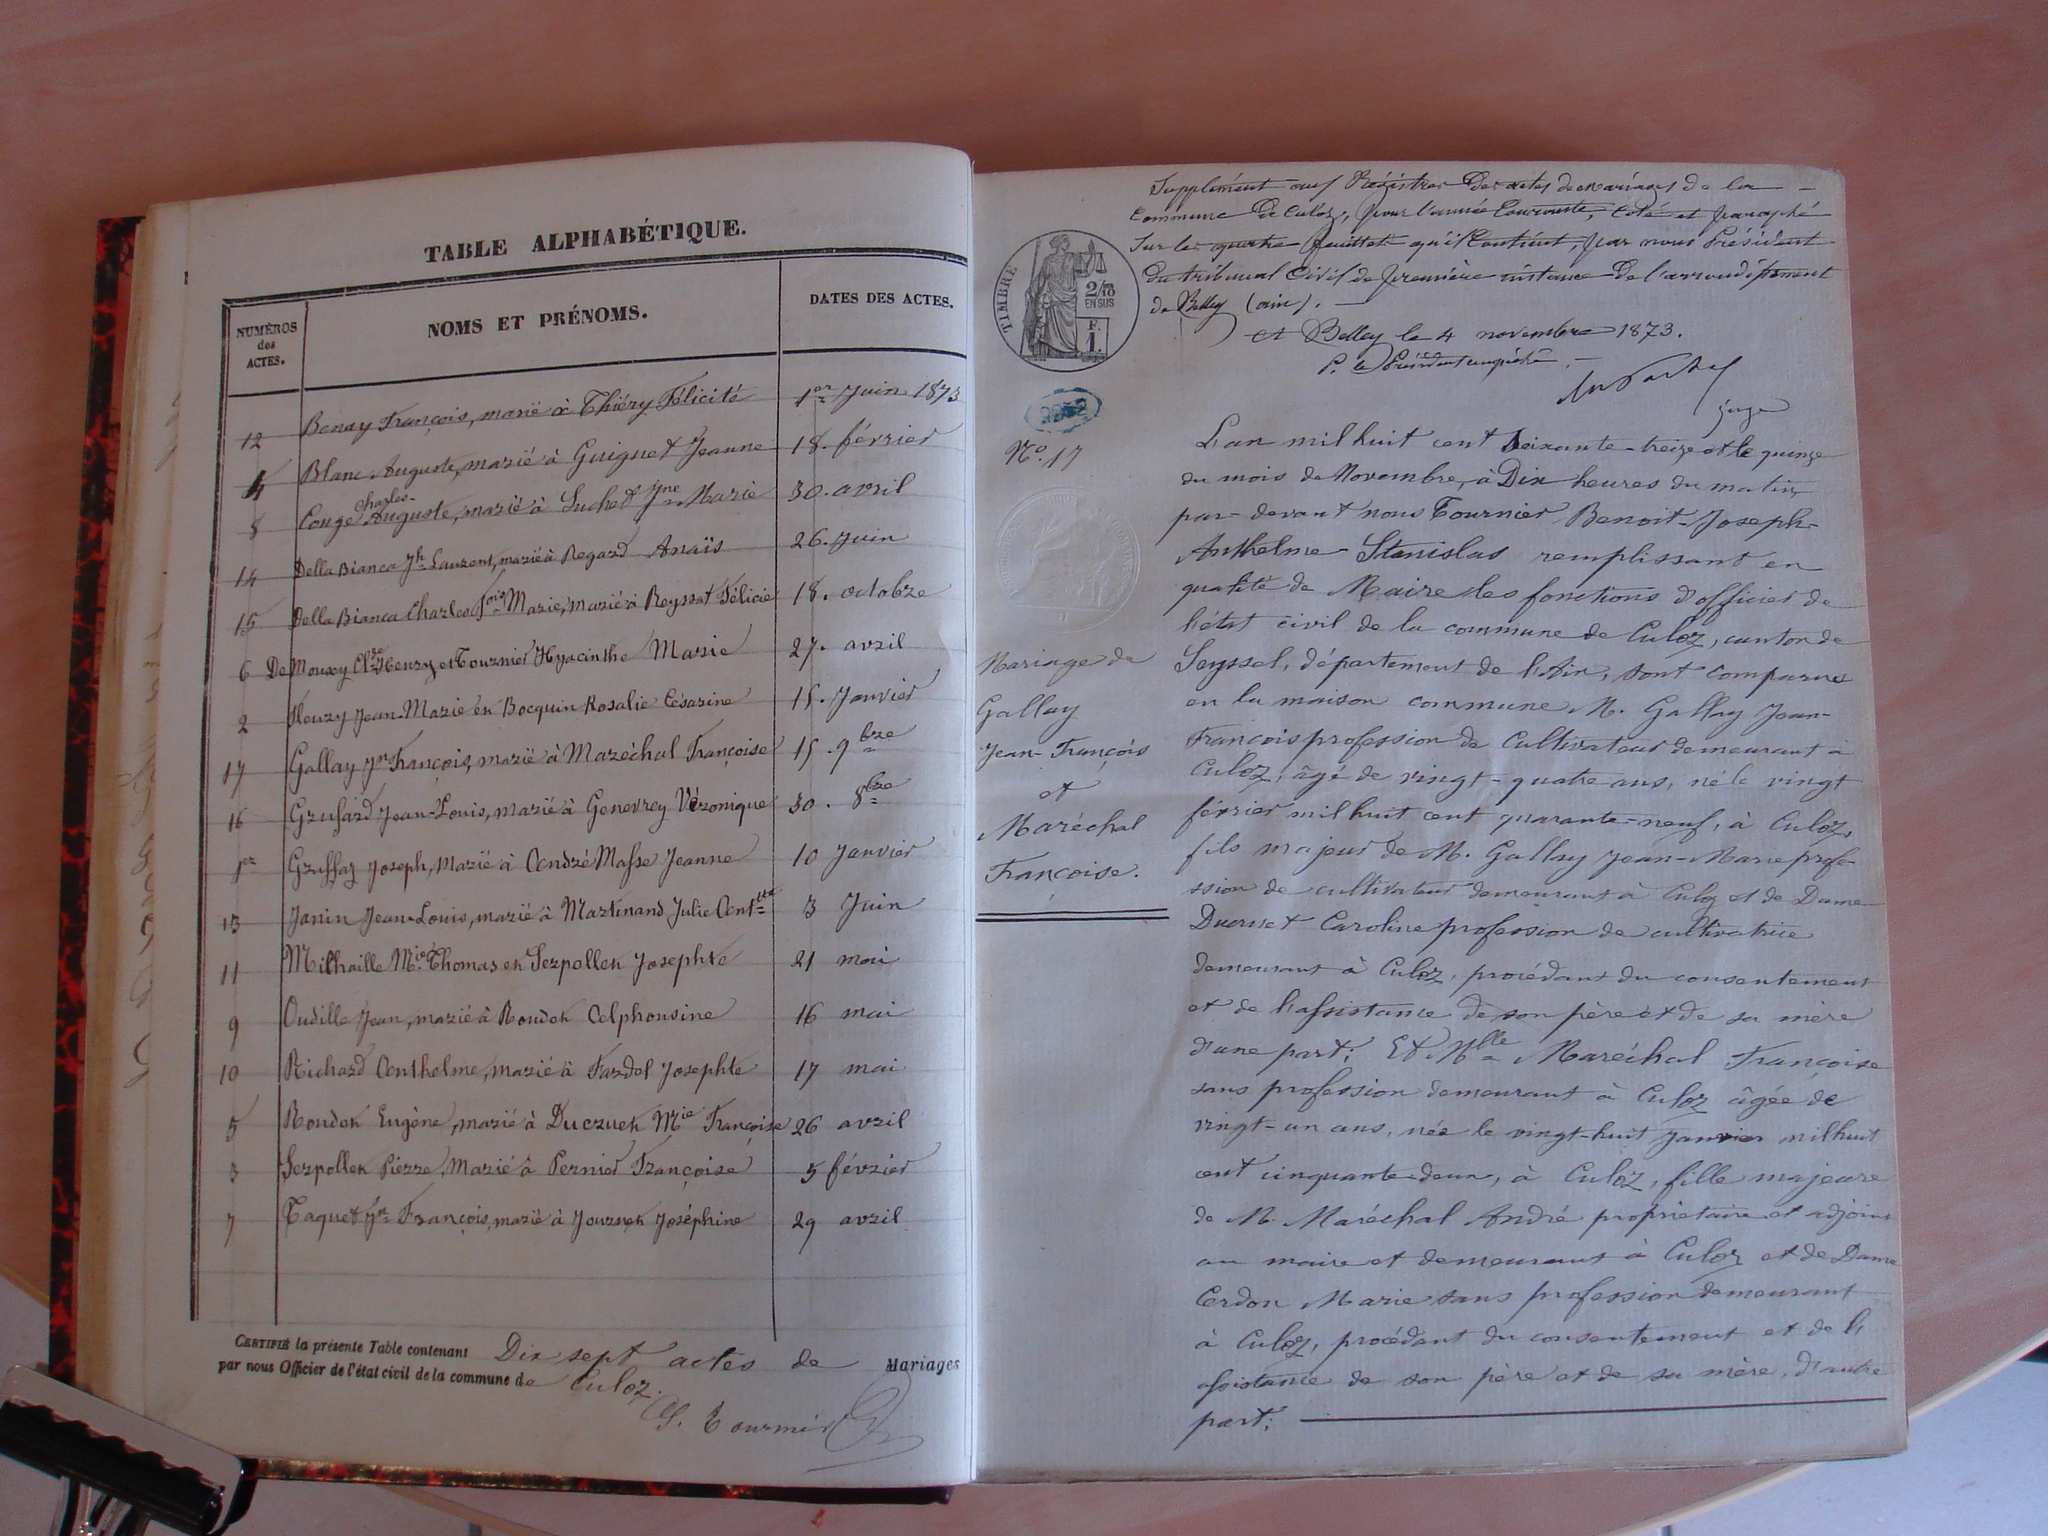 TABLE ALPHABÉTIQUE.
NUMÉROS des ACTES.
NOMS ET PRÉNOMS.
DATES DES ACTES.
12 Benay François, marié à Thiéry Félicité 1er Juin 1873
4 Blanc Auguste, marié à Guignet Jeanne 18. février
8 Conge Charles-Auguste, marié à Suchet Jne Marie 30. avril
14 Della Bianca Jh Laurent, marié à Regard Anaïs 26. Juin
15 Della Bianca Charles fois Marie, marié à Reyssat Félicie 18. octobre
6 De Mouxy Henry et Tournier Hyacinthe Marie 27. avril
2 Fleury Jean-Marie et Bocquin Rosalie Césarine 15. Janvier
17 Gallay Jn François, marié à Maréchal Françoise 15. 9bre
16 Jean-Louis, marié à Genevrey Véronique 30. 8bre
1er Gruffaz Joseph, Marié à André Masse Jeanne 10 Janvier
13 Janin Jean-Louis, marié à Martinand Julie Antte 3 Juin
11 Milhaille Mie Thomas et Serpollet Josephte 21 mai
9 Oudille Jean, marié à Roudet Alphonsine 16 mai
10 Richard Anthelme, marié à Fardel Josephte 17 mai
5 Roudet Eugène, marié à Ducruet Mie Françoise 26 avril
3 Serpollet Pierre, Marié à Pernier Françoise 5 février
7 Taquet Jn François, marié à Journet Joséphine 29 avril
CERTIFIÉ la présente Table contenant Dix sept actes de Mariages
par nous Officier de l'état civil de la commune de Culoz.
S. Tournier
Supplément aux Registres des actes de mariages de la
commune de Culoz, pour l'année courante, coté et paraphé
sur les quatre feuillets qu'il contient, par nous Président
du tribunal civil de première instance de l'arrondissement
de Belley (ain).
A Belley le 4 novembre 1873.
P. le Président empêché
juge
TIMBRE
2/10
EN SUS
F.
1.
No. 17
Mariage de
Gallay
Jean-François
et
Maréchal
Françoise.
L'an mil huit cent soixante-treize et le quinze
du mois de Novembre, à Dix heures du matin,
par-devant nous Tournier Benoit-Joseph-
Anthelme-Stanislas remplissant en
qualité de Maire les fonctions d'officier de
l'état civil de la commune de Culoz, canton de
Seyssel, département de l'Ain, sont comparus
en la maison commune M. Gallay Jean-
François profession de Cultivateur demeurant à
Culoz, âgé de vingt-quatre ans, né le vingt
février mil huit cent quarante-neuf, à Culoz,
fils majeur de M. Gallay Jean-Marie profe-
ssion de cultivateur demeurant à Culoz et de Dame
Ducruet Caroline profession de cultivatrice
demeurant à Culoz, procédant du consentement
et de l'assistance de son père et de sa mère
d'une part; Et Mlle Maréchal Françoise
sans profession demeurant à Culoz âgée de
vingt-un ans, née le vingt-huit Janvier mil huit
cent cinquante-deux, à Culoz, fille majeure
de M. Maréchal André propriétaire et adjoint
au maire et demeurant à Culoz et de Dame
Cerdon Marie sans profession demeurant
à Culoz, procédant du consentement et de l'
assistance de son père et de sa mère, d'autre
part;